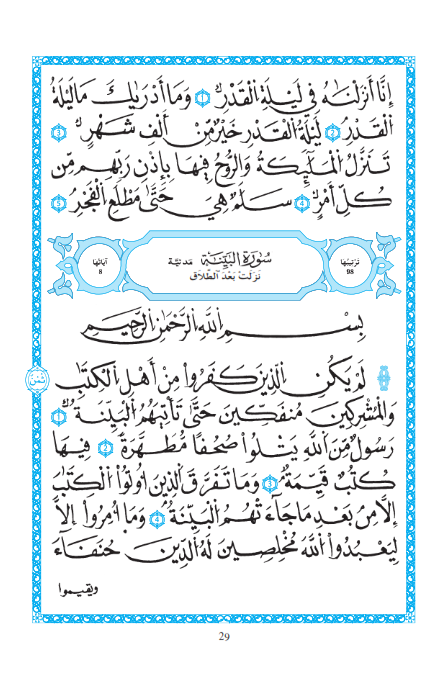 إِنَّا أَنزَلْنَٰهُ فِي لَيْلَةِ اِ۬لْقَدْرِۖ 1 وَمَا أَدْر۪يٰكَ مَا لَيْلَةُ
اُ۬لْقَدْرِۖ 2 لَيْلَةُ اُ۬لْقَدْرِ خَيْرٌ مِّنْ أَلْفِ شَهْرٖۖ 3
تَنَزَّلُ اُ۬لْمَلَٰٓئِكَةُ وَالرُّوحُ فِيهَا بِإِذْنِ رَبِّهِم مِّن
كُلِّ أَمْرٖۖ 4 سَلَٰمٌ هِيَ حَتَّىٰ مَطْلَعِ اِ۬لْفَجْرِۖ 5
ترتيبها 98
سُورَةُ الْبَيِّنَةِ مدنية
نزلت بعد الطلاق
آياتها 8
بِسْمِ اِ۬للَّهِ اِ۬لرَّحْمَٰنِ اِ۬لرَّحِيمِ
لَمْ يَكُنِ اِ۬لذِينَ كَفَرُواْ مِنْ أَهْلِ اِ۬لْكِتَٰبِ
وَالْمُشْرِكِينَ مُنفَكِّينَ حَتَّىٰ تَأْتِيَهُمُ اُ۬لْبَيِّنَةُۖ 1
رَسُولٌ مِّنَ اَ۬للَّهِ يَتْلُواْ صُحُفاً مُّطَهَّرَةٗۖ 2 فِيهَا
كُتُبٌ قَيِّمَةٌۖ 3 وَمَا تَفَرَّقَ اَ۬لذِينَ أُوتُواْ اُ۬لْكِتَٰبَ
إِلَّا مِنۢ بَعْدِ مَا جَآءَتْهُمُ اُ۬لْبَيِّنَةُۖ 4 وَمَا أُمِرُواْ إِلَّا
لِيَعْبُدُواْ اُ۬للَّهَ مُخْلِصِينَ لَهُ اُ۬لدِّينَ حُنَفَآءَ
ويقيموا
29